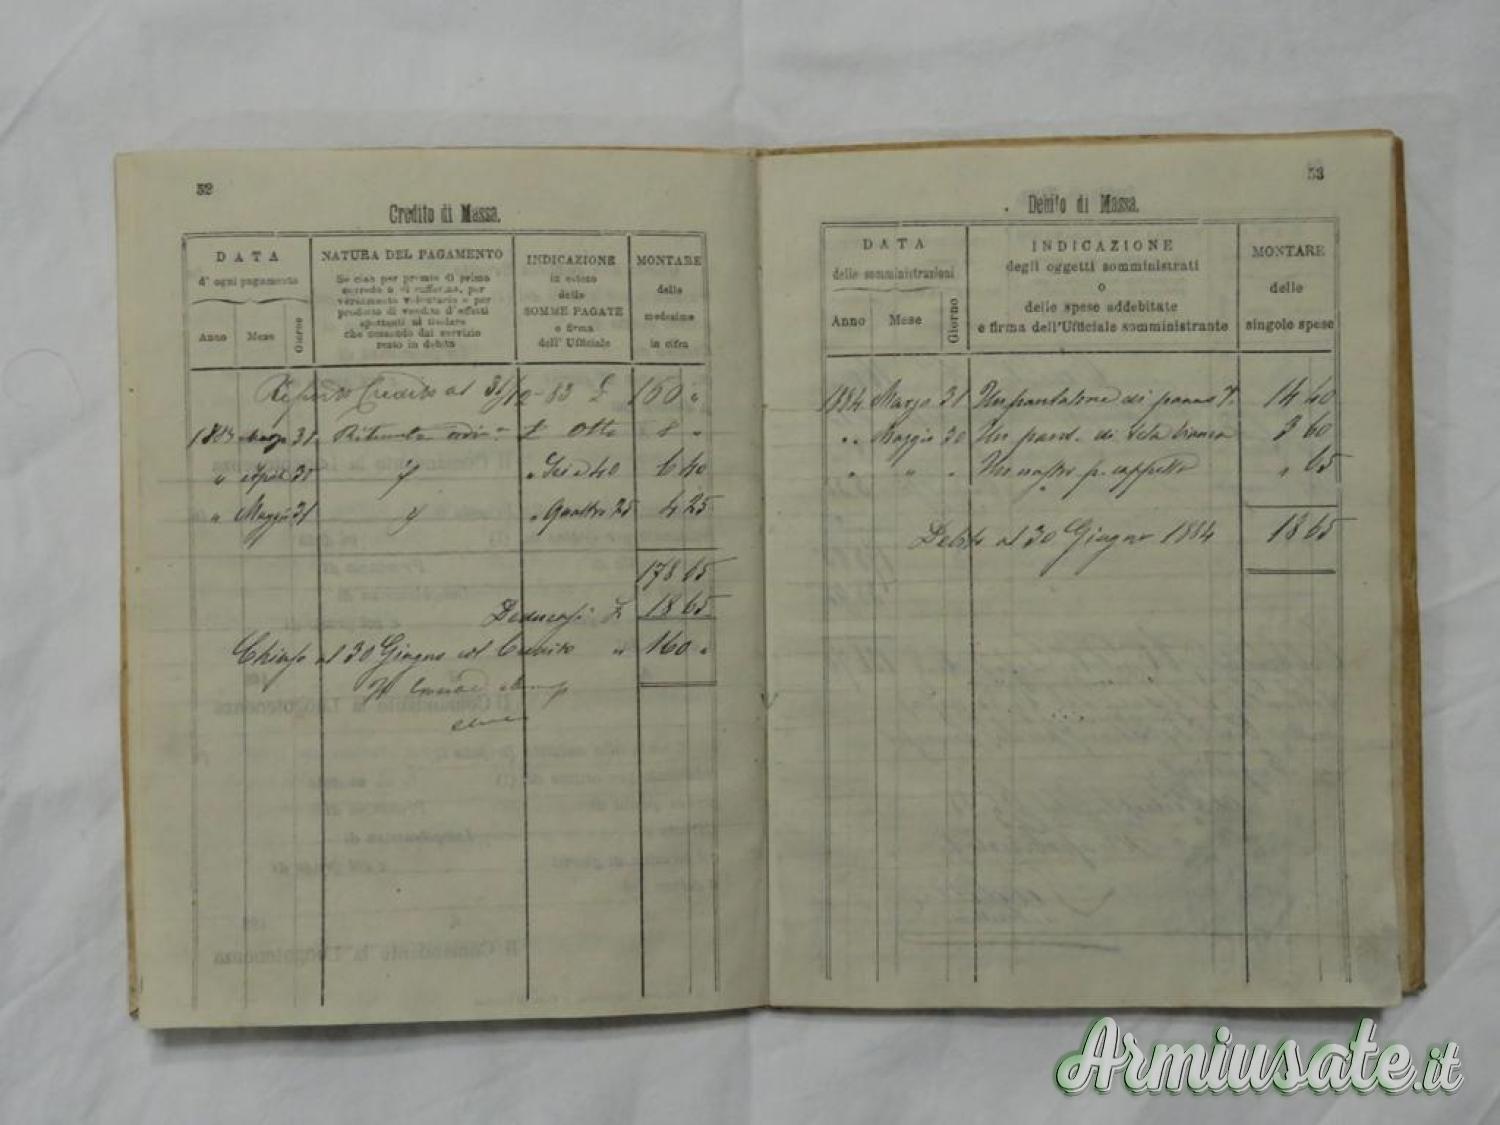 52
Credito di Massa.
DATA
d' ogni pagamento
Anno Mese Giorno
NATURA DEL PAGAMENTO
Se cioè per premio di primo
corredo o di rafferma, per
versamento volontario o per
prodotto di vendita d'effetti
spettanti al titolare
che cessando dal servizio
resto in debito
INDICAZIONE
in esteso
delle
SOMME PAGATE
e firma
dell' Ufficiale
MONTARE
delle
medesime
in cifra
Riporto Credito al 31/12-83 £ 160 "
1883 Marzo 31 Ritenuta ordin.a £ Otto 8 "
" Aprile 30 " " Sei e 40 6 40
" Maggio 31 " " Quattro 25 4 25
178 65
Deduconsi £ 18 65
Chiuso al 30 Giugno col Credito " 160 "
53
Debito di Massa.
DATA
delle somministrazioni
Anno Mese Giorno
INDICAZIONE
degli oggetti somministrati
o
delle spese addebitate
e firma dell'Ufficiale somministrante
MONTARE
delle
singole spese
1884 Marzo 31 Un pantalone di panno T. 14 40
" Maggio 30 Un pant. di tela bianca 3 60
" " " Un nastro p. cappello " 65
Debito al 30 Giugno 1884 18 65
Armiusate.it